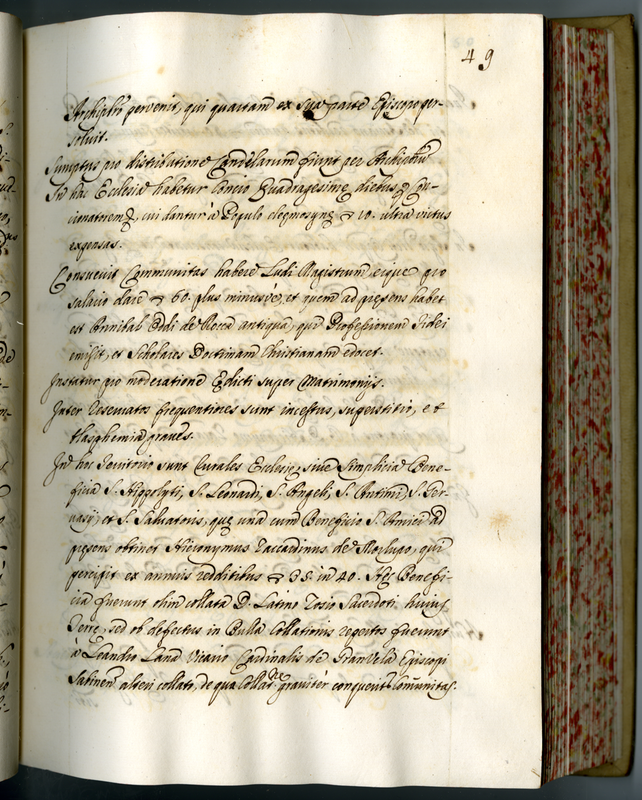 49
Archipbro pervenit, qui quartam ex sua parte Episcopo per-
solvit.
Sumptus pro distributione Candelarum fiunt per Archipbrum
In hac Ecclesia habetur Concio Quadragesimę diebus, et Con-
cionatorem, cui dantur à Populo eleemosynę 10. ultra victus
expensas.
Consuevit Communitas habere Ludi Magistrum, eique pro
salario dare 60. plus minusvè, et quem ad pręsens habet
est Annibal de Rocca antiqua, qui Professionem Fidei
emisit, et Scholares Doctrinam Christianam edocet.
Instatur pro moderatione Edicti super Matrimonijs.
Inter reservatos frequentiores sunt incestus, superstitio, et
blasphemia graves.
In hoc Territorio sunt Curales Ecclesię, sive Simplicia Bene-
ficia S. Hippolyti, S. Leonardi, S. Angeli, S. Antimi, S. Ger-
vasij, et S. Salvatoris, quę una cum Beneficio S. ad
pręsens obtinet Hieronymus Taccadinus de, qui
percipit ex annuis redditibus 35. in 40. Hęc Benefi-
cia fuerunt olim collata D. Latino Tosio Sacerdoti huius
Terrę, sed ob defectus in Bulla Collationis repertos fuerunt
à Leandro Lana Vicario Cardinalis de Granvela Episcopi
Sabinen alteri collata, de qua Collatne graviter conqueritur Communitas.